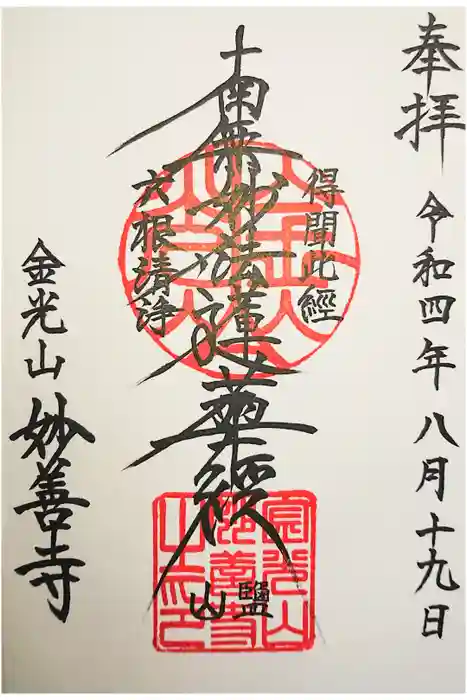 奉拝
令和四年八月十九日
得聞此經
南無妙法蓮華經
六根清浄
鹽山
金光山妙善寺